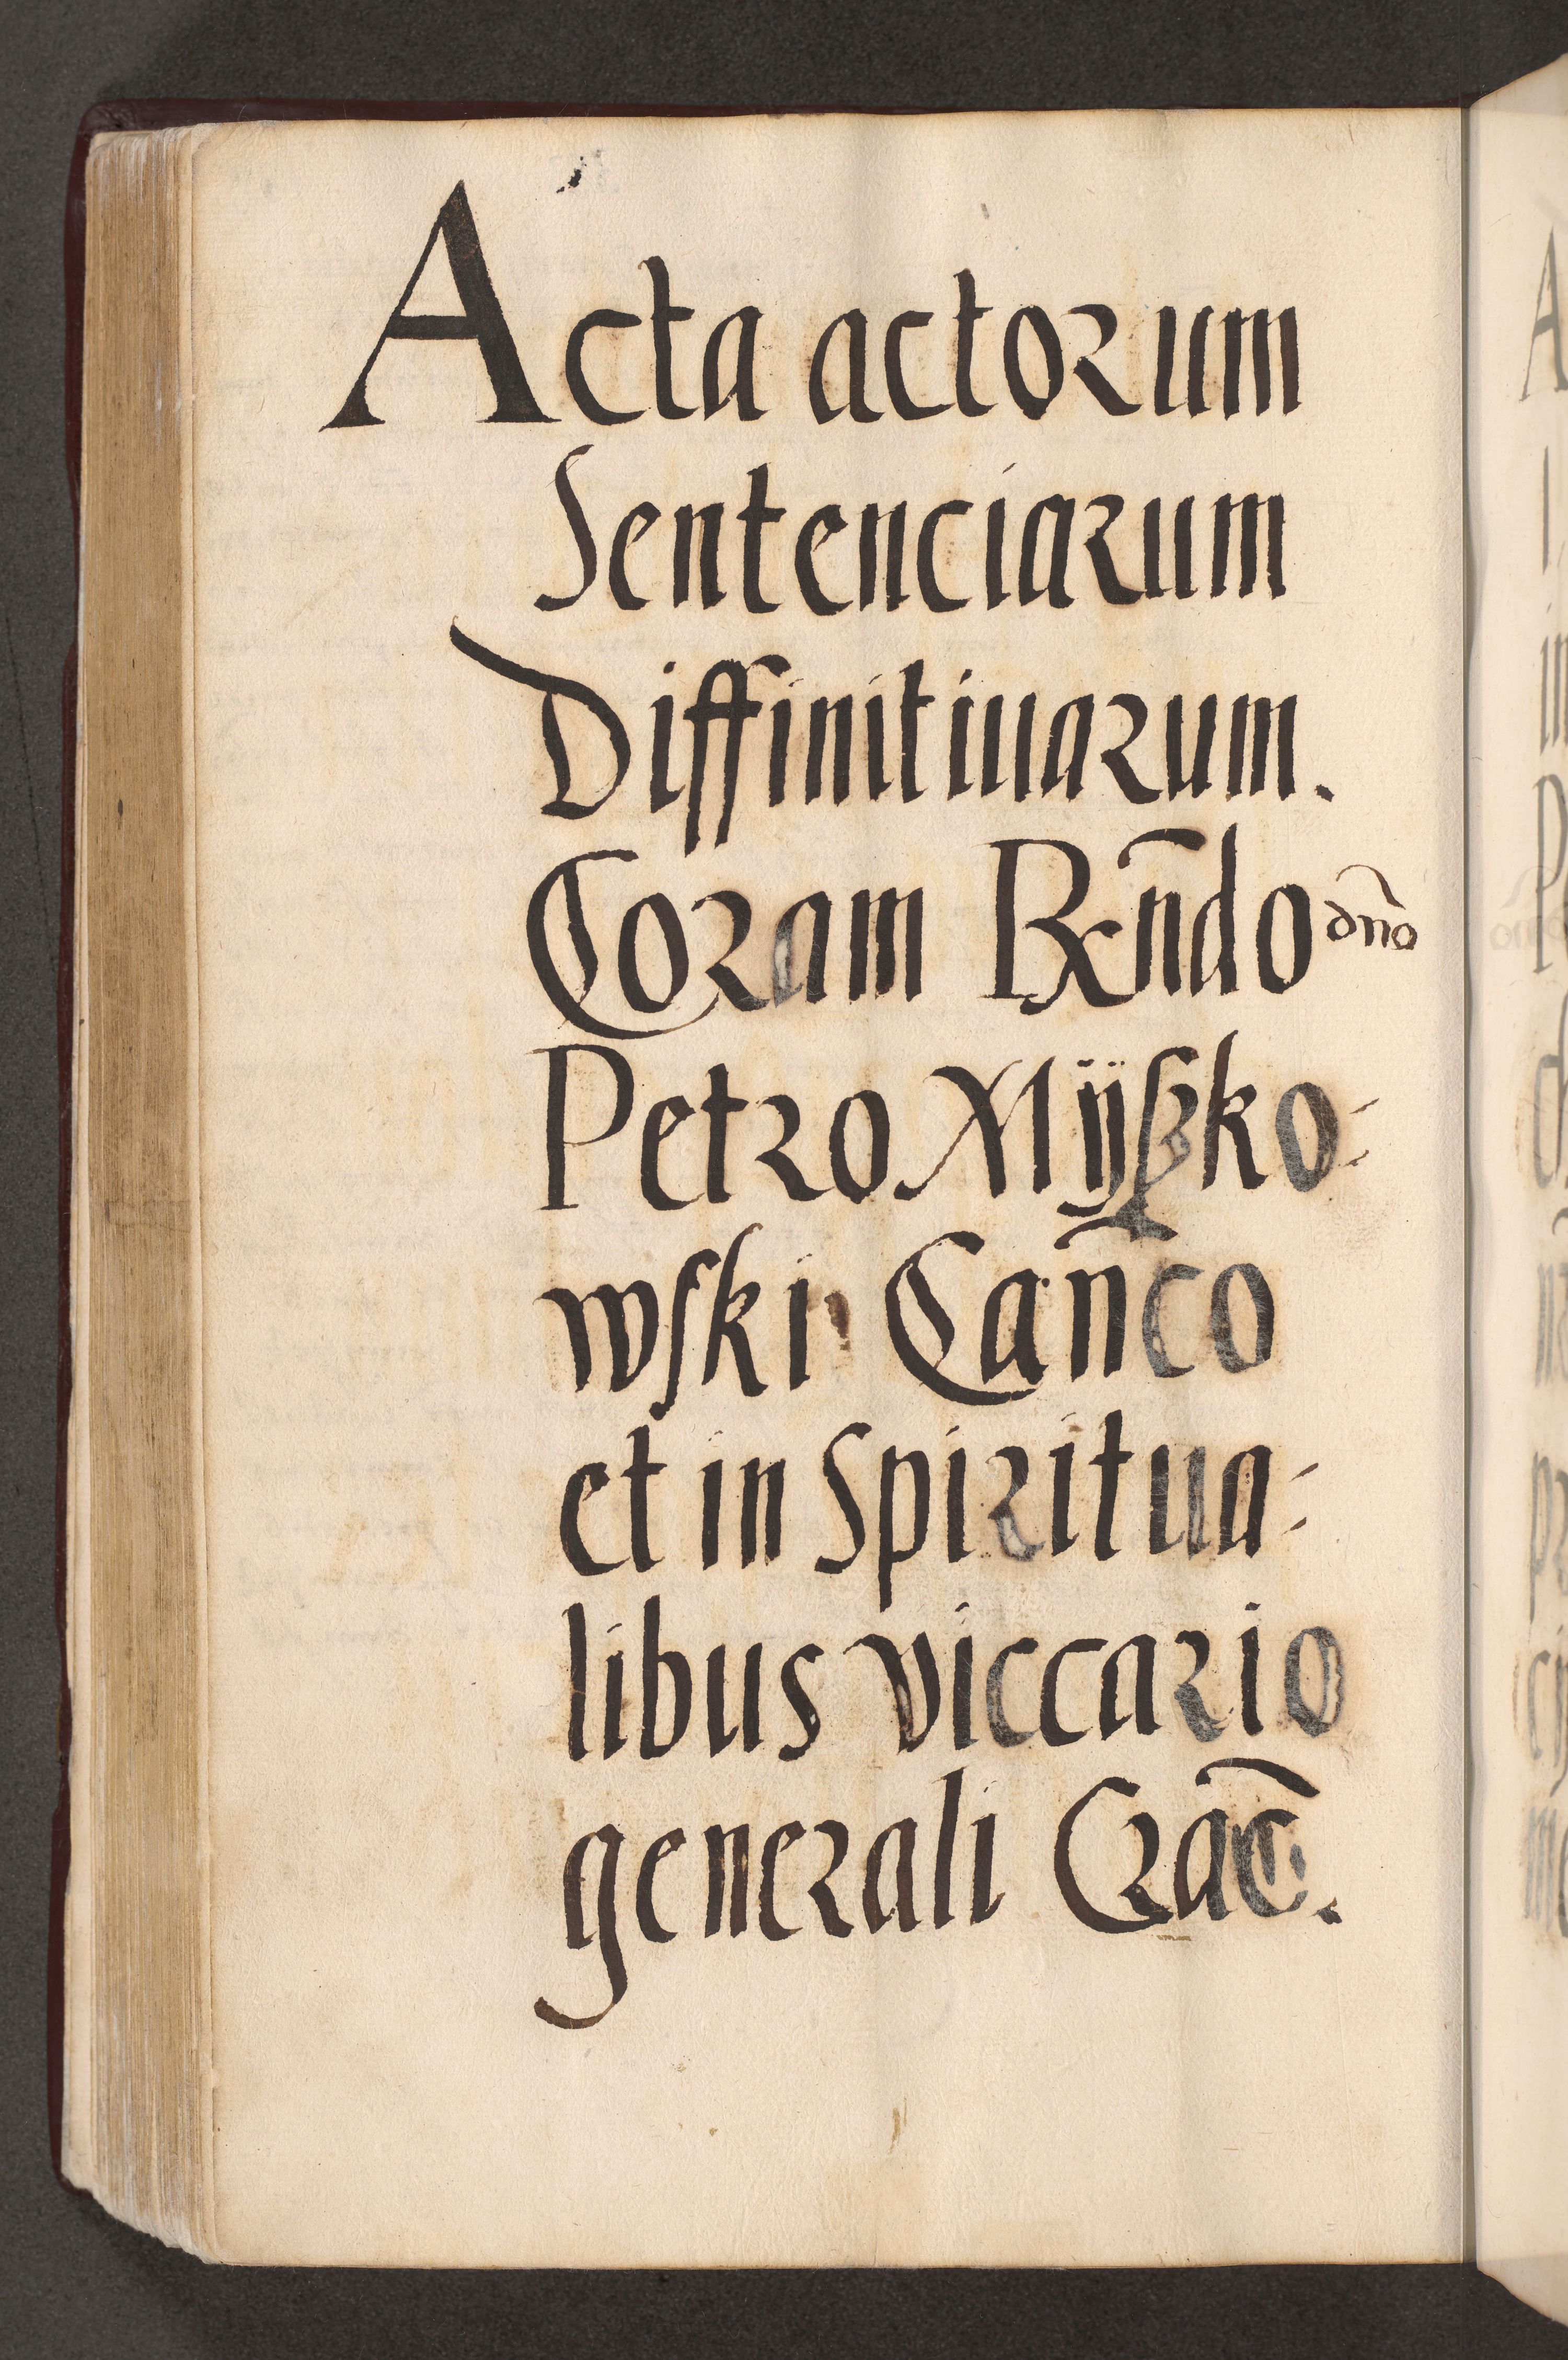 Acta actorum
Sentenciarum
Diffinitiuarum.
Coram Rñdo dño
Petro Mÿßko-
wſki Cañco
et in Spiritua-
libus viccario
generali Crac̄.